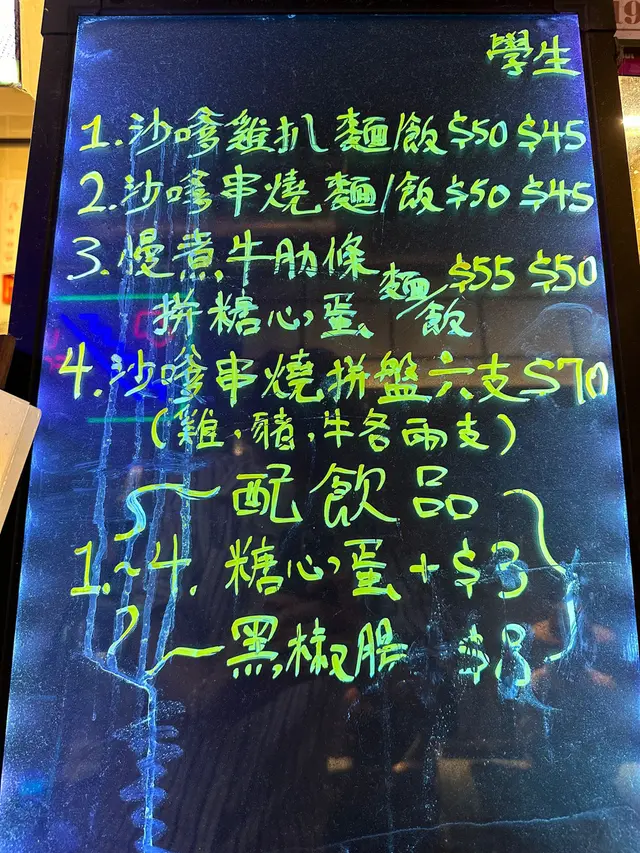 學生
1.沙嗲雞扒麵/飯$50 $45
2.沙嗲串燒麵/飯$50 $45
3.慢煮牛肋條
拼糖心蛋 麵/飯 $55 $50
4.沙嗲串燒拼盤六支$70
(雞,豬,牛各兩支)
配飲品
1.~4. 糖心蛋+$3
黑椒腸 $8